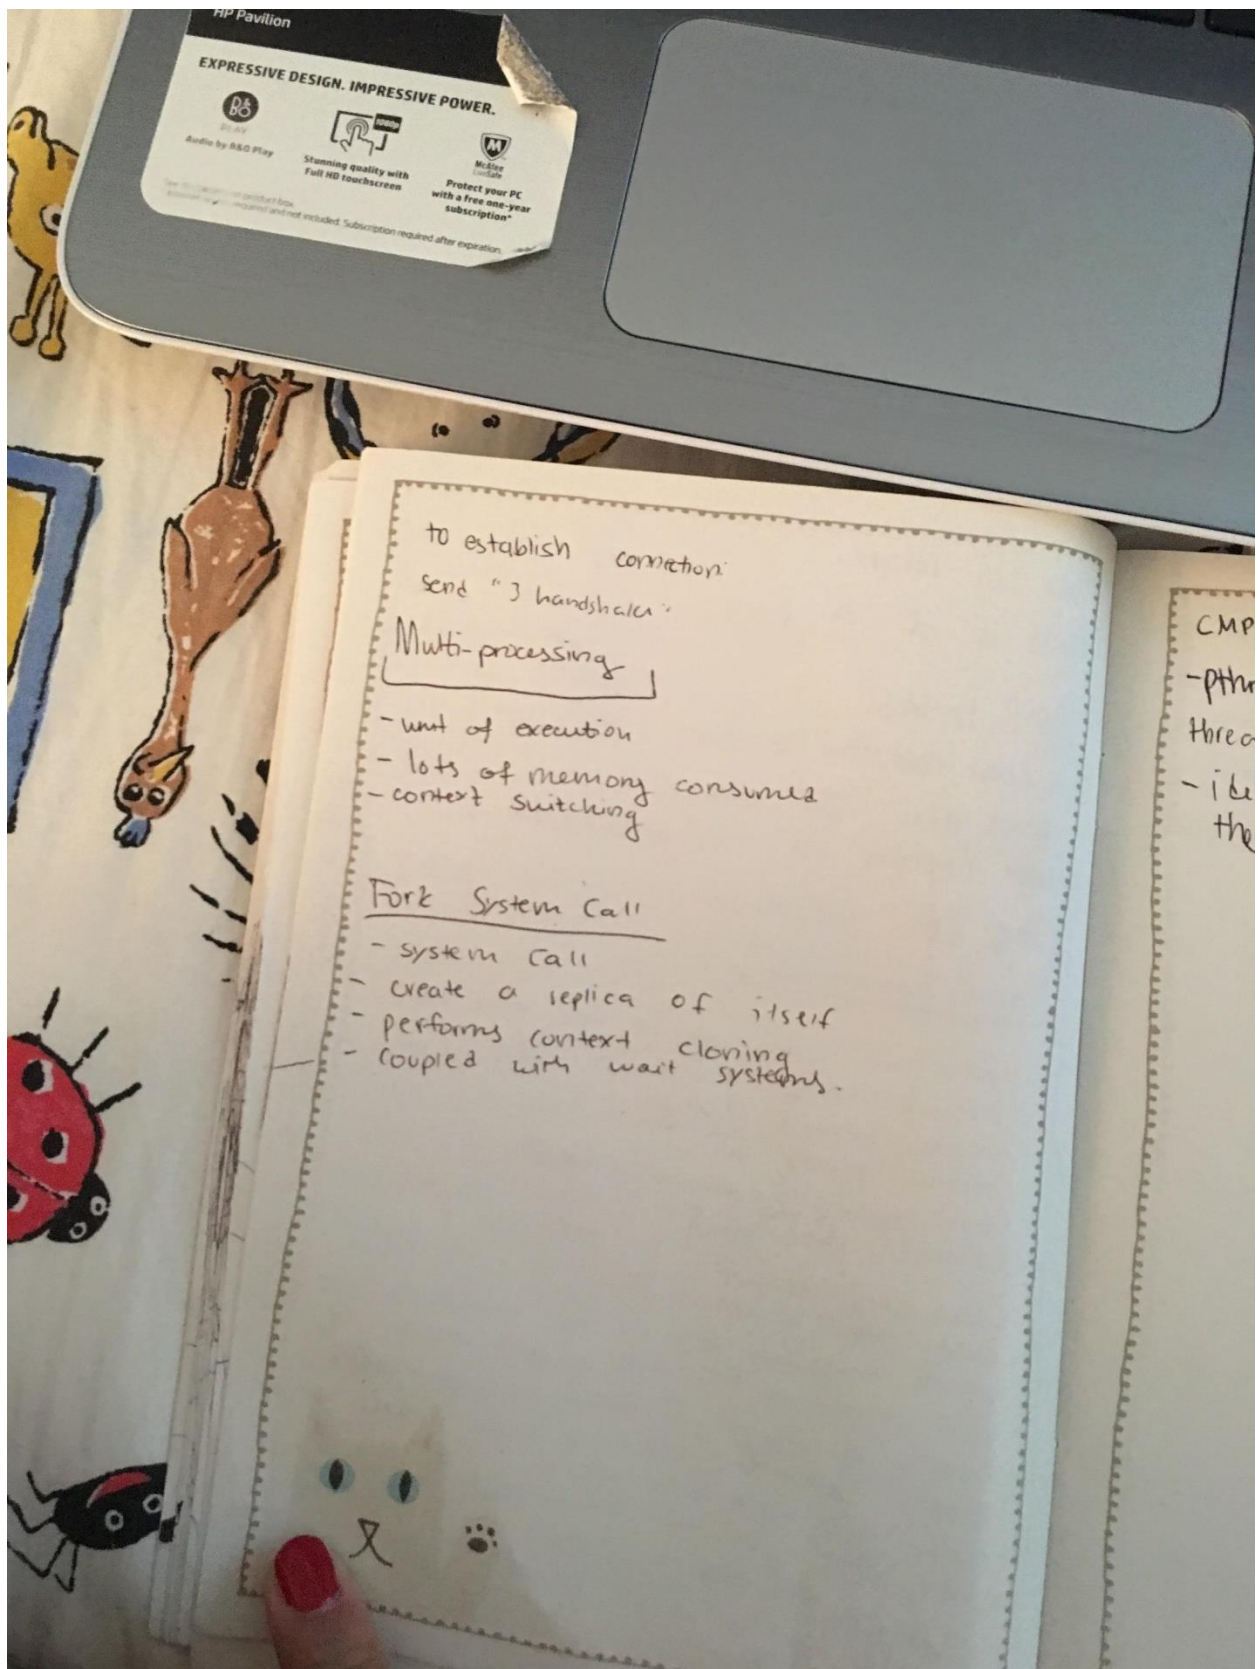 HP Pavilion
EXPRESSIVE DESIGN. IMPRESSIVE POWER.
B&O
PLAY
Audio by B&O Play
1080p
Stunning quality with
Full HD touchscreen
McAfee
LiveSafe
Protect your PC
with a free one-year
subscription*
product box.
required and not included. Subscription required after expiration.
to establish connection:
send "3 handshakes"
Multi-processing
- unit of execution
- lots of memory consumed
- context switching
Fork System Call
- system call
- create a replica of itself
- performs context cloning
- coupled with wait systems.
CMP
- pthr
threa
- ide
the